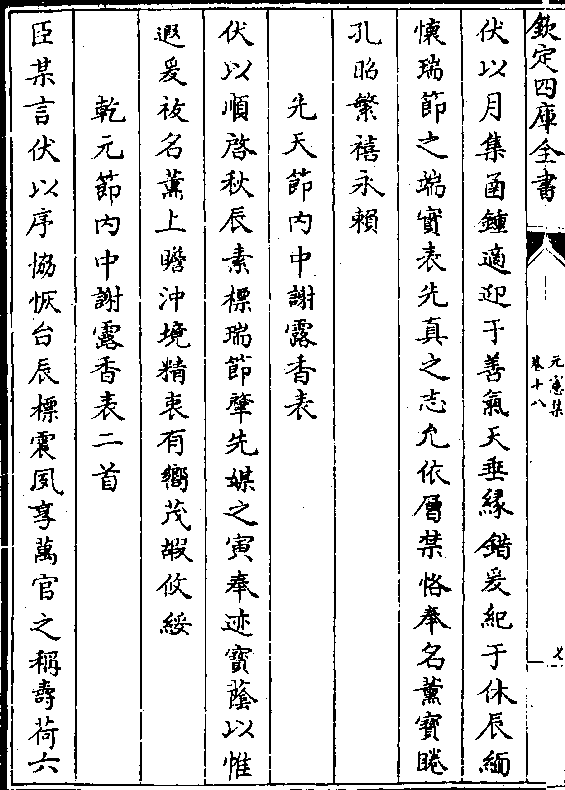 欽定四庫全書
元憲集
卷十八
七
伏以月集函鍾適迎于善氣天垂緣錯爰紀于休辰緬
懷瑞節之端實表先真之志允依層禁恪奉名薰寶睠
孔昭繁禧永賴
先天節内中謝露香表
伏以順啓秋辰素標瑞節肇先媒之寅奉迹寶蔭以惟
遐爰祓名薰上瞻沖境精衷有嚮茂嘏攸綏
乾元節内中謝露香表二首
臣某言伏以序協恢台辰標震夙享萬官之稱壽荷六